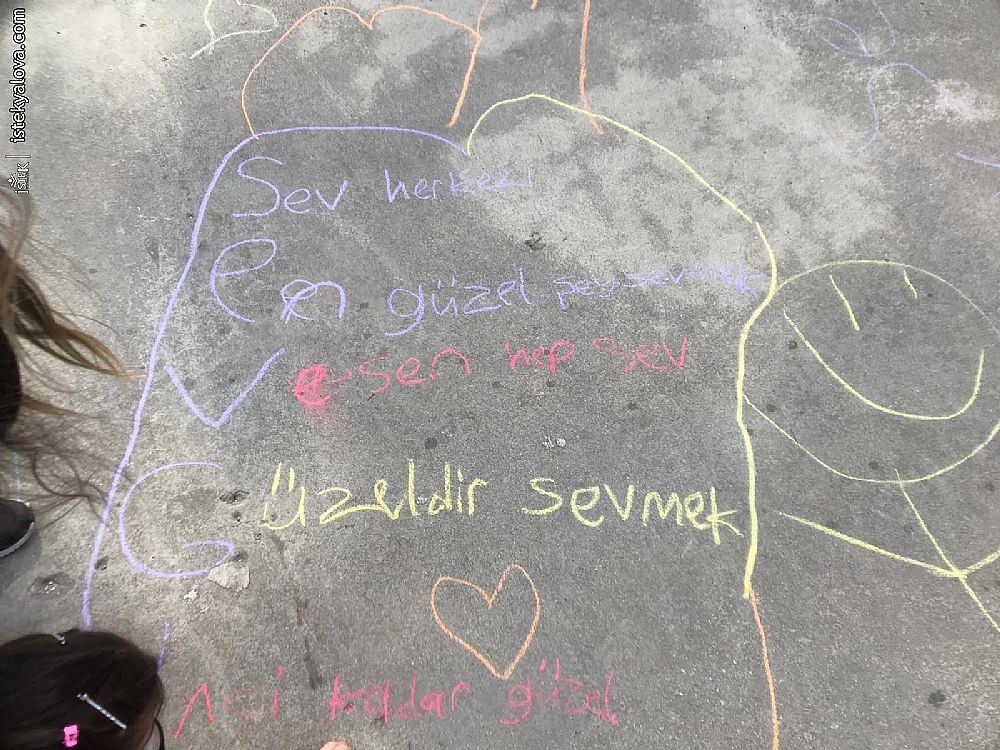 Sev herkesi
en güzel şey sevmek
Ve sen hep sev
Güzeldir sevmek
nci kadar güzel
istekyalova.com